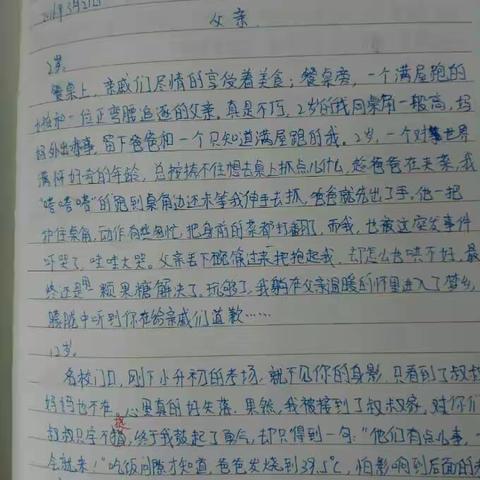 父亲
2岁。
餐桌上，亲戚们尽情的享受着美食；餐桌旁，一个满屋跑的
小孩和一位正弯腰追逐的父亲。真是不巧，2岁的我同桌角一般高，妈
妈外出办事，留下爸爸和一个只知道满屋跑的我。2岁，一个对世界
满怀好奇的年龄，总按捺不住想去桌上抓点儿什么，趁爸爸在夹菜，我
“嗒嗒嗒”的跑到桌角边还未等我伸手去抓，爸爸就先出了手。他一把
护住桌角，动作有些匆忙，把身前的菜都打翻了，而我，也被这突发事件
吓哭了，哇哇大哭。父亲丢下碗筷过来抱起我，却怎么也哄不好，最
终还是一颗果糖解决了。玩够了，我躺在父亲温暖的怀里进入了梦乡，
朦胧中听到你在给亲戚们道歉……
12岁。
名校门口，刚下小升初的考场，就不见你的身影，只看到了叔叔
妈妈也不在，心里真的好失落。果然，我被接到了叔叔家，对你们
叔叔只字不提，终于我鼓起了勇气，却只得到一句：“他们有点儿事，一
会就来！”吃饭间隙才知道，爸爸发烧到39.5℃，怕影响到后面的考